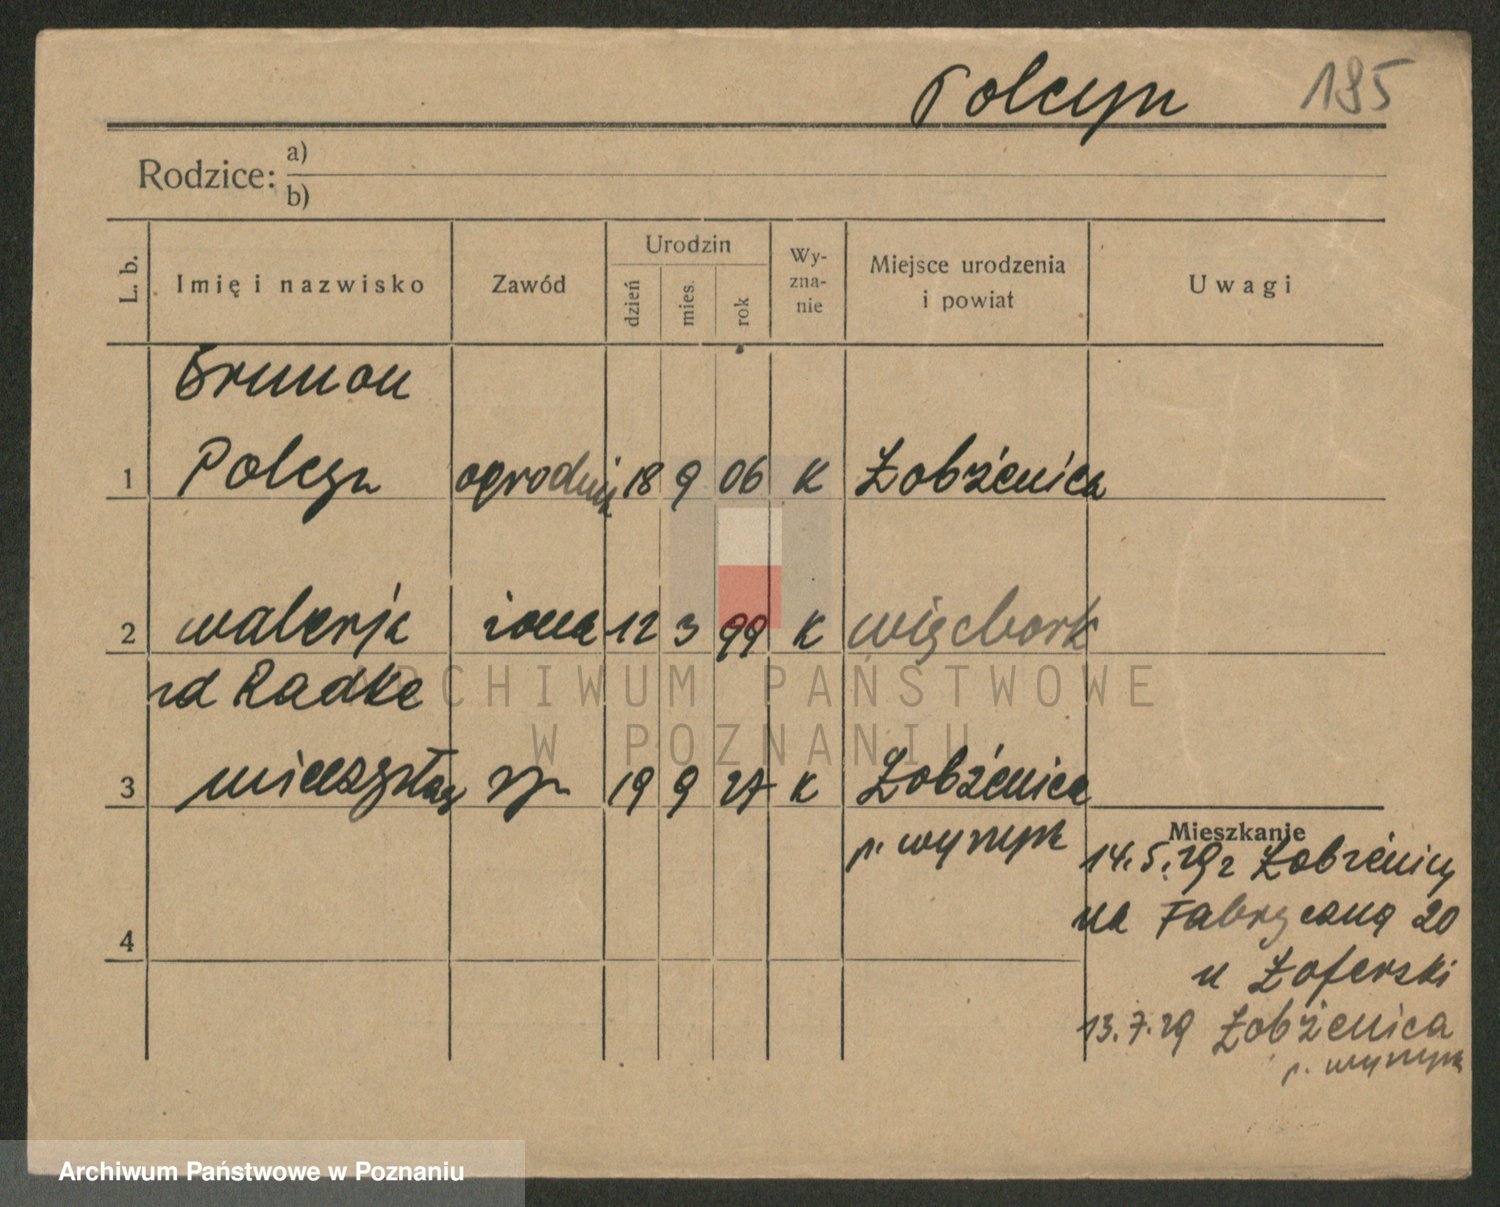 Polcyn 195
Rodzice: a)
b)
L. b. Imię i nazwisko Zawód Urodzin dzień mies. rok Wy-zna-nie Miejsce urodzenia i powiat Uwagi
Brunon
1 Polcyn ogrodnik 18 9 06 K Łobżenica
2 Walerja żona 12 3 99 K Więcbork
zd Radke
3 Mieczysław syn 19 9 27 K Łobżenica
p. Wyrzysk
Mieszkanie
14.5.29 z Łobżenicy
na Fabryczną 20
4
u Łoferski
13.7.29 Łobżenica
p. Wyrzysk
ARCHIWUM PAŃSTWOWE
W POZNANIU
Archiwum Państwowe w Poznaniu